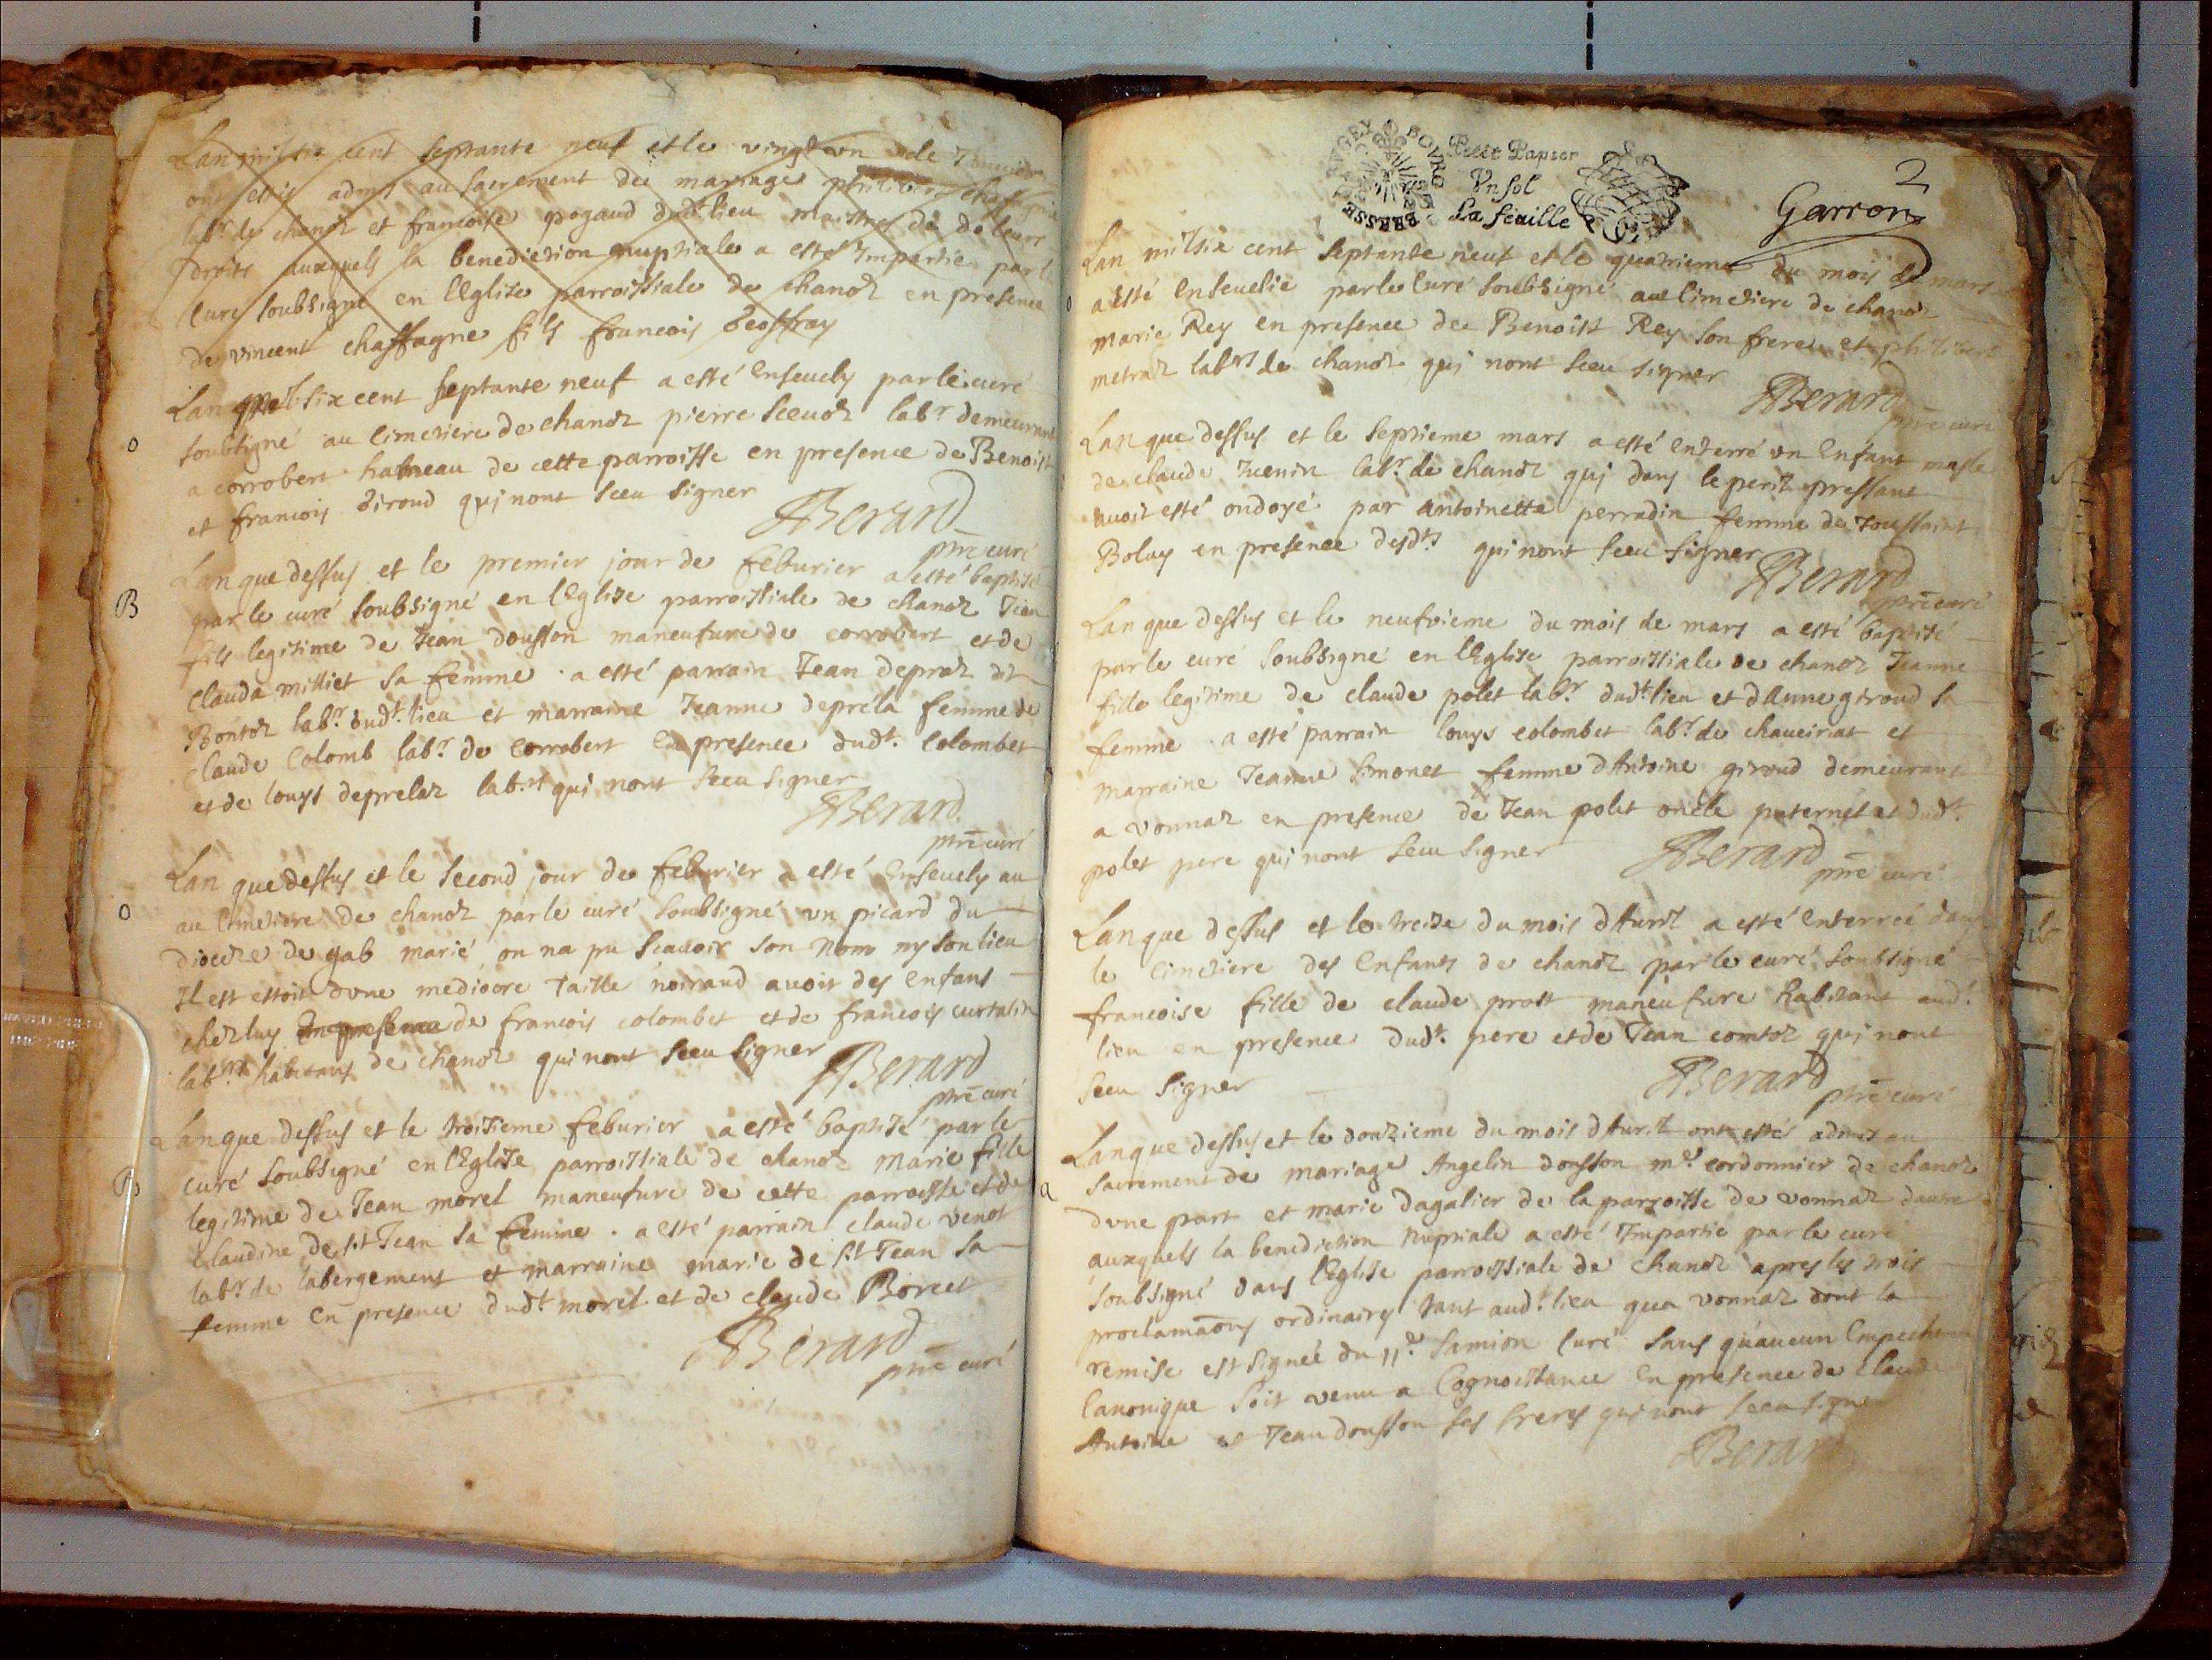 Lan mil six cent septante neuf et le vingt un de Januier
ont estés admis au sacrement de mariage philibert chaffagne
labr de chanoz et francoise pogaud dudt lieu maistres de de leurs
droits auxquels la benediction nuptiale a esté Impartie par le
Curé soubsigné en lEglise parroissiale de chanoz en presence
de vincent chaffagne fils francois Geoffray
Lan mil six cent septante neuf a esté Enseuely par le curé
O
soubsigné au Cimetiere de chanoz pierre labr demeurant
a corrobert hameau de cette parroisse en presence de Benoist
et francois Giroud qui nont sceu signer
Berard
ptre curé
Lan que dessus et le premier jour de feburier a esté baptisé
B
par le curé soubsigné en lEglise parroissiale de chanoz Jean
fils legitime de Jean dousson maneufure de corrobert et de
Clauda milliet sa femme . a esté parrain Jean depraz dit
Bontoz labr dudt lieu et marraine Jeanne deprela femme de
Claude Colomb labr de Corrobert En presence dudt Colombet
et de louys deprelaz labrs qui nont sceu signer
Berard
ptre curé
Lan que dessus et le second jour de feburier a esté Enseuely au
O
au Cimetiere de chanoz par le curé soubsigné un picard du
diocese de gab marié, on na pu scauoir son nom ny son lieu
Il est estoit dune mediocre taille noiraud auoit des enfans
chez luy En presence de francois colombet et de francois curtalin
labrs habitans de chanoz qui nont sceu signer
Berard
ptre curé
Lan que dessus et le troisieme feburier a esté baptisé par le
B
curé soubsigné en lEglise parroissiale de chanoz Marie fille
legitime de Jean morel maneufure de cette parroisse et de
Claudine de st Jean sa femme . a esté parrain claude venot
labr de labergement et marraine marie de st Jean sa
femme En presence dudt morel et de claude Borcet
Berard
ptre curé
BRESSE BVGEY BOVRG
Petit Papier
Vn sol
La feuille
2
Garron
Lan mil six cent septante neuf et le quatrieme du mois de mars
O
a esté Enseuelie par le Curé soubsigné au Cimetiere de chanoz
marie Rey en presence de Benoist Rey son frere et philibert
metraz labrs de chanoz qui nont sceu signer
Berard
ptre curé
Lan que dessus et le septieme mars a esté enterré un Enfant masle
de claude labr de chanoz qui dans le peril pressant
auoit esté ondoyé par antoinette perradin femme de toussaint
Boluy en presence desdts qui nont sceu signer
Berard
ptre curé
Lan que dessus et le neufvieme du mois de mars a esté baptisé
par le curé soubsigné en lEglise parroissiale de chanoz Jeanne
fille legitime de claude polet labr dudt lieu et dAnne giroud sa
femme . a esté parrain louys colombet labr de chaueiriat et
marraine Jeanne simonet femme dAntoine giroud demeurant
a vonnaz en presence de Jean polet oncle paternel et dudt
polet pere qui nont sceu signer
Berard
ptre curé
Lan que dessus et le treize du mois dAuril a esté Enterreé dans
le Cimetiere des Enfants de chanoz par le curé soubsigné
francoise fille de claude prost maneufure habitant audt
lieu en presence dudt pere et de Jean comtoz qui nont
sceu signer
Berard
ptre curé
Lan que dessus et le douzieme du mois dAuril ont estés admis au
a
sacrement de mariage Angelin dousson me cordonnier de chanoz
dune part et marie dagalier de la parroisse de vonnaz dautre
auxquels la benediction nuptiale a esté Impartie par le curé
soubsigné dans lEglise parroissiale de chanoz apres les trois
proclamaons ordinaires tant audt lieu qua vonnaz dont la
remise est signeé du sr samion Curé sans quaucun Empechement
Canonique soit venu a Cognoissance En presence de Claude
Antoine et Jean dousson ses freres qui nont sceu signer
Berard